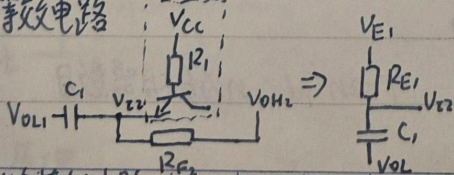 等效电路
VCC
R1
C1
VOL1
VI2
VOH2
RE2
⇒
VE1
RE1
VI2
C1
VOL